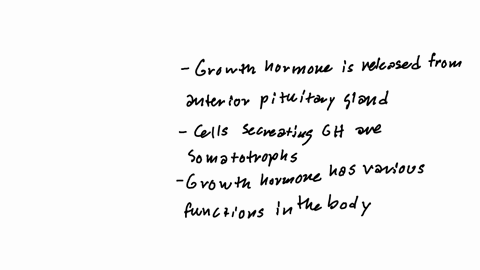 - Growth hormone is released from
anterior pituitary gland
- Cells secreating GH are
Somatotrophs
- Growth hormone has various
functions in the body